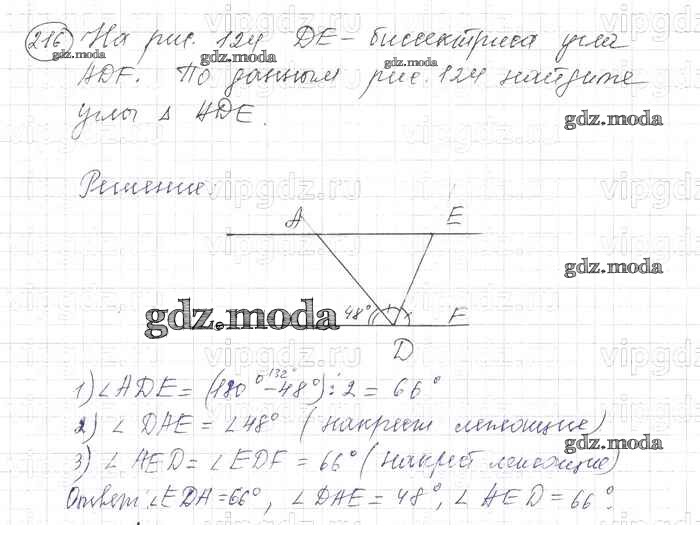 216 На рис. 124 DE – биссектриса угла
ADF. По данным рис. 124 найдите
углы Δ ADE.
Решение.
A E
48°
F
D
1) ∠ADE = (180° – 48°) : 2 = 66°
132°
2) ∠ DAE = ∠48° (накрест лежащие)
3) ∠ AED = ∠ EDF = 66° (накрест лежащие)
Ответ: ∠EDA = 66°, ∠ DAE = 48°, ∠ AED = 66°.
gdz.moda
gdz.moda
gdz.moda
gdz.moda
gdz.moda
gdz.moda
gdz.moda
vipgdz.ru
vipgdz.ru
vipgdz.ru
vipgdz.ru